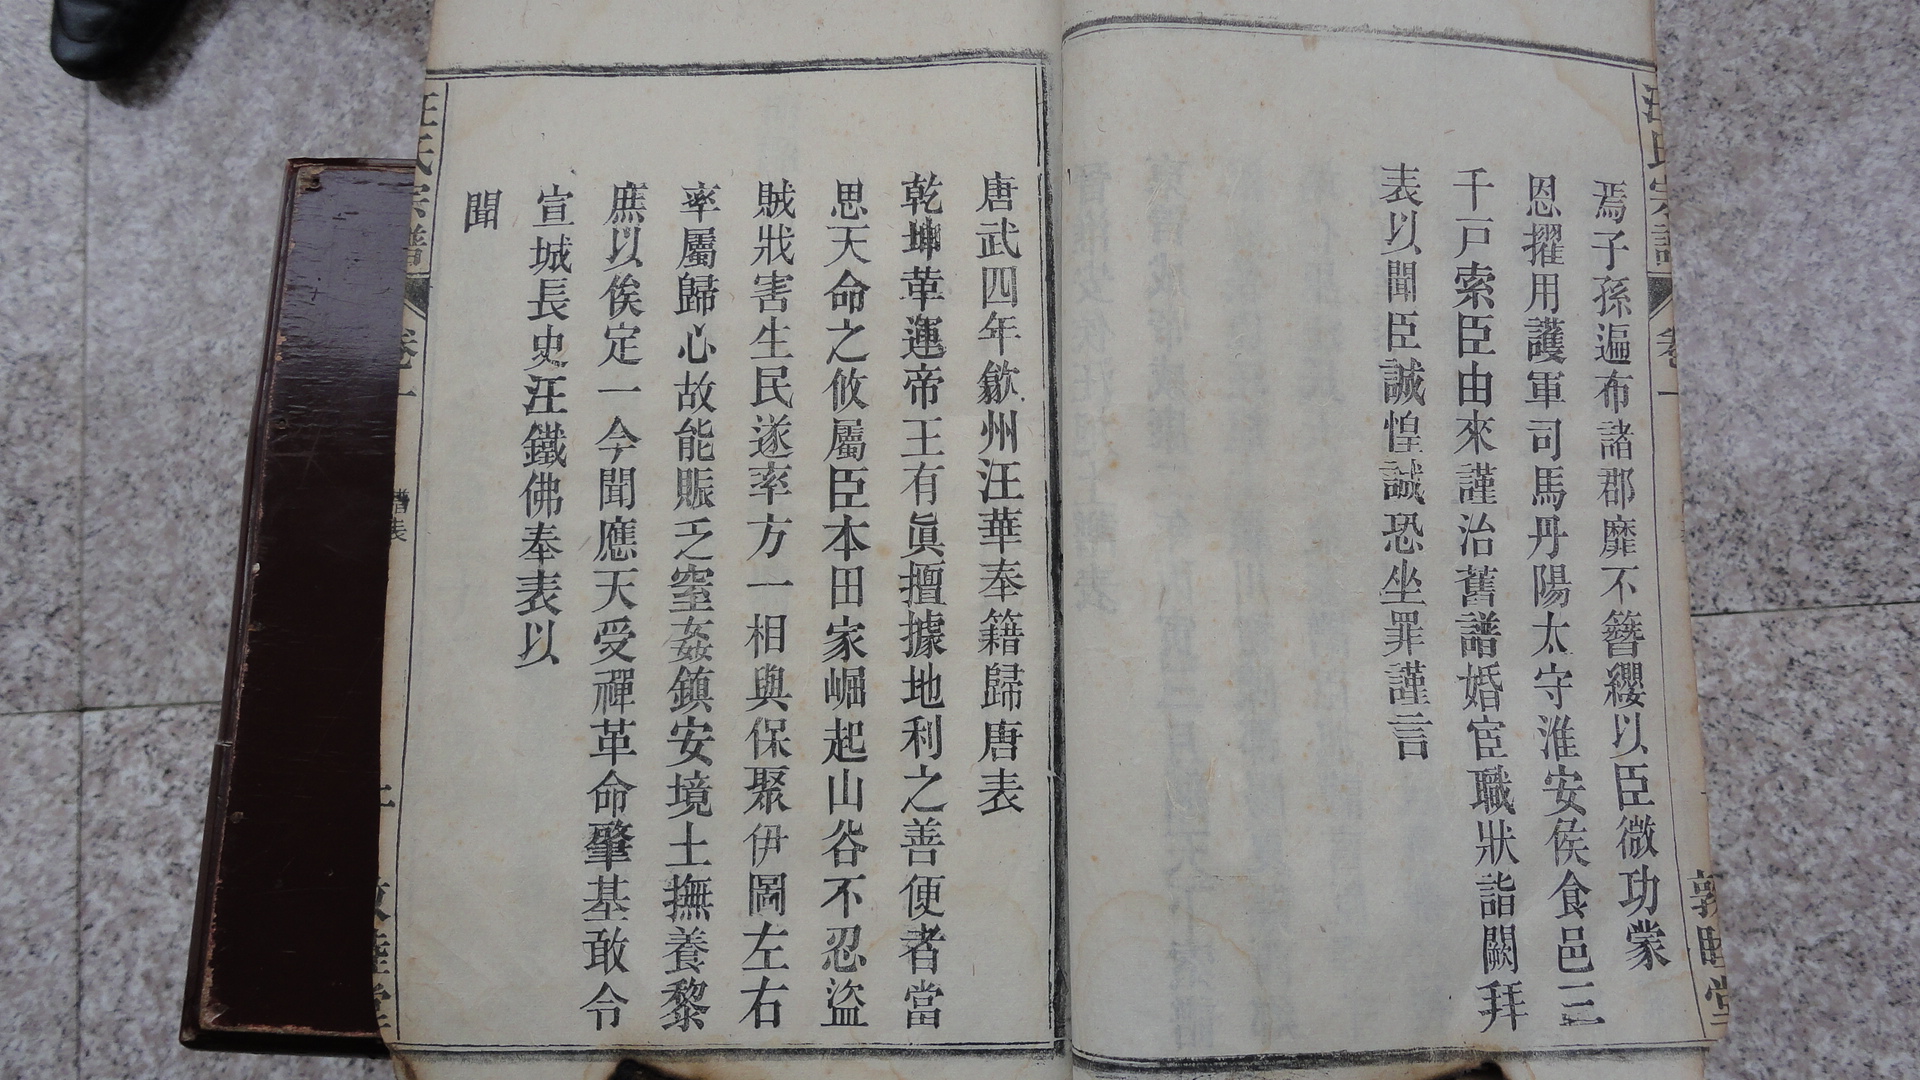 焉子孫遍布諸郡靡不簪纓以臣微功蒙
恩擢用護軍司馬丹陽太守淮安侯食邑三
千戸索臣由來謹治舊譜婚宦職狀詣闕拜
表以聞臣誠惶誠恐坐罪謹言
唐武四年歙州汪華奉籍歸唐表
乾坤革運帝王有眞擅據地利之善便者當
思天命之攸屬臣本田家崛起山谷不忍盜
賊戕害生民遂率方一相與保聚伊圖左右
率屬歸心故能賑乏窒姦鎮安境土撫養黎
庶以俟定一今聞應天受禪革命肇基敢令
宣城長史汪鐵佛奉表以
聞
汪氏宗譜
卷一
敦睦堂